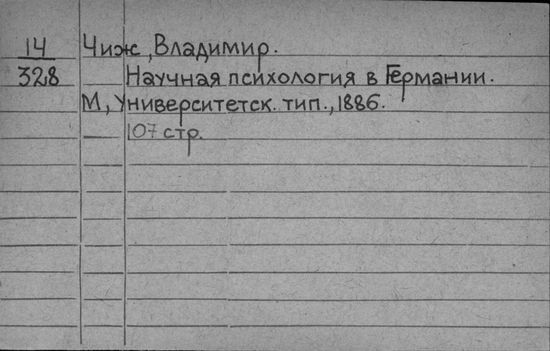 14 Чиж, Владимир.
328 Научная психология в Германии.
М, Университетск. тип., 1886.
107 стр.